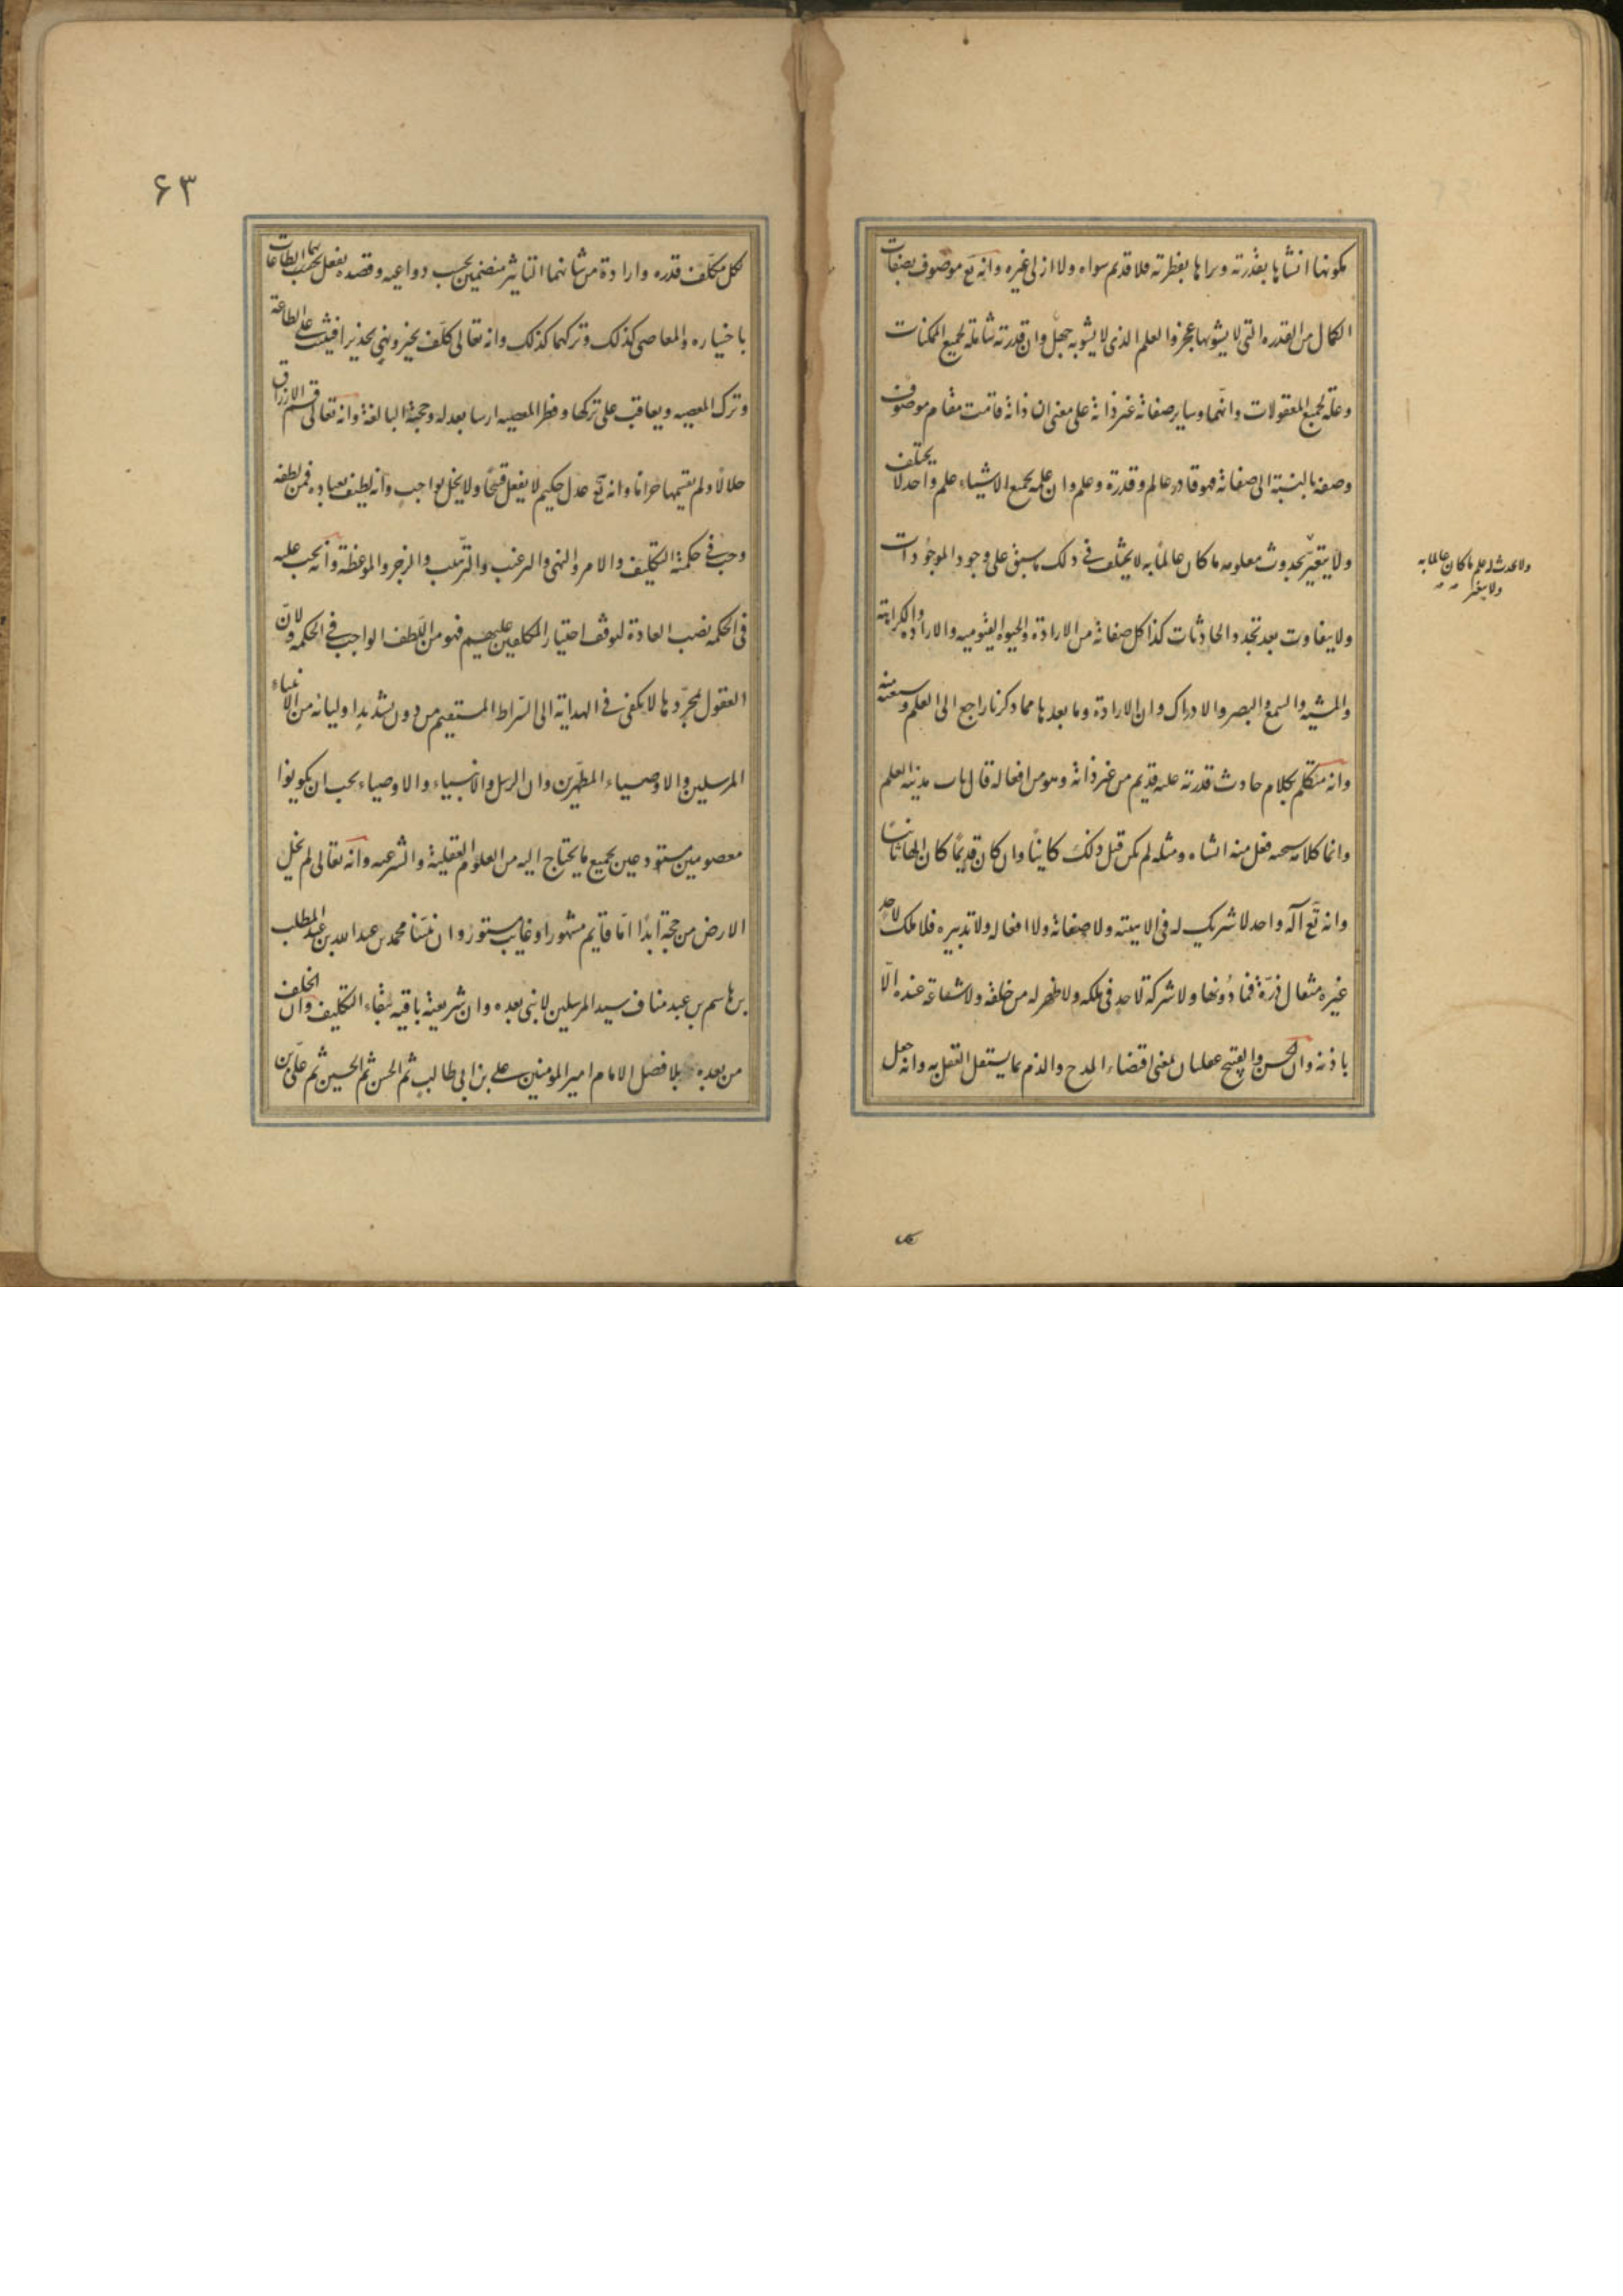 مكونها انشاها بقدرته وبراها بفطرته فلا قديم سواه ولا ازلى غيره وانه تع موصوف بصفات
الكمال من القدره التى لا يشوبها عجز والعلم الذى لا يشوبه جهل وان قدرته شاملة لجميع الممكنات
وعلمه لجميع المعقولات وانهما وساير صفاته غير ذاته على معنى ان ذاته قامت مقام موصوف
وصفه بالنسبة الى صفاته فهو قادر عالم وقدرة وعلم وان علمه بجميع الاشياء علم واحد لا يختلف
ولا يتغير بحدوث معلومه ما كان عالما به لا يختلف فى ذلك سبق على وجود الموجودات
ولا يتفاوت بعد تجدد الحادثات كذا كل صفاته من الارادة والحيوه القيوميه والاراده والكراهة
والمشيه والسمع والبصر والادراك وان الارادة وما بعدها مما ذكرنا راجع الى العلم وسعته منه
وانه متكلم بكلام حادث قدرته عليه قديم من غير ذاته وهو من افعاله قال باب مدينه العلم
وانما كلامه سبحنه فعل منه انشاه ومثله لم يكن قبل ذلك كاينا وان كان قديما كان الها ثانيا
وانه تع اله واحد لا شريك له فى الاهيته ولا صفاته ولا افعاله ولا تدبيره فلا ملك لاحد
غيره مثقال ذرة فما دونها ولا شركة لاحد فى ملكه ولا ظهر له من خلقه ولا شفاعة عنده الا
باذنه وان الحسن والقبح عقليان بمعنى اقتضاء المدح والذم بما يستقل العقل به وانه جعل
ولا يحدث له علم ما كان عالما به
ولا يتغير
۶۳
لكل مكلف قدره وارادة من شانهما التاثير منضمين بحسب دواعيه وقصده يفعل بهما الطاعات
باختياره والمعاصى كذلك وتركهما كذلك وانه تعالى كلف بخير ونهى بحذير افيثيب على الطاعة
وترك المعصيه ويعاقب على تركها و المعصيه بعدله وحجته البالغة وانه تعالى قسم الارزاق
حلالا ولم يقسمها حراما وانه تع عدل حكيم لا يفعل قبيحا ولا يخل بواجب وانه لطيف بعباده فمن لطفه
وجب فى حكمته التكليف والامر والنهى والترغيب والترهيب والزجر والموعظة وانه يجب عليه
فى الحكمه نصب العادة اختيار المكلفين عليهم فهو من اللطف الواجب فى الحكمه ولان
العقول بمجردها لا يكفى فى الهداية الى السراط المستقيم من دون تشديد اوليائه من الانبياء
المرسلين والاوصياء المطهرين وان الرسل والانبياء والاوصياء يجب ان يكونوا
معصومين مستودعين بجميع ما يحتاج اليه من العلوم العقلية والشرعيه وانه تعالى لم يخل
الارض من حجة ابدا اما قايم مشهور او غايب مستور وان نبينا محمد بن عبد الله بن عبد المطلب
بن هاسم بن عبد مناف سيد المرسلين لا نبى بعده وان شريعته باقيه ببقاء التكليف وان الخلف
من بعده بلا فصل الامام امير المومنين على بن ابى طالب ثم الحسن ثم الحسين ثم على بن